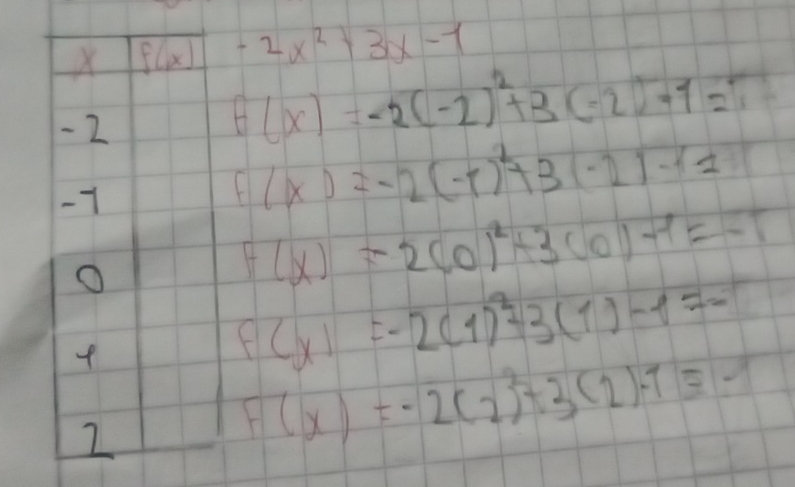 x f(x) -2x² + 3x - 1
-2 f(x) = -2(-2)² + 3(-2) - 1 =
-1 f(x) = -2(-1)² + 3(-2) - 1 =
0 f(x) = -2(0)² + 3(0) - 1 = -1
1 f(x) = -2(1)² + 3(1) - 1 = -
2 f(x) = -2(2)² + 3(2) - 1 = -